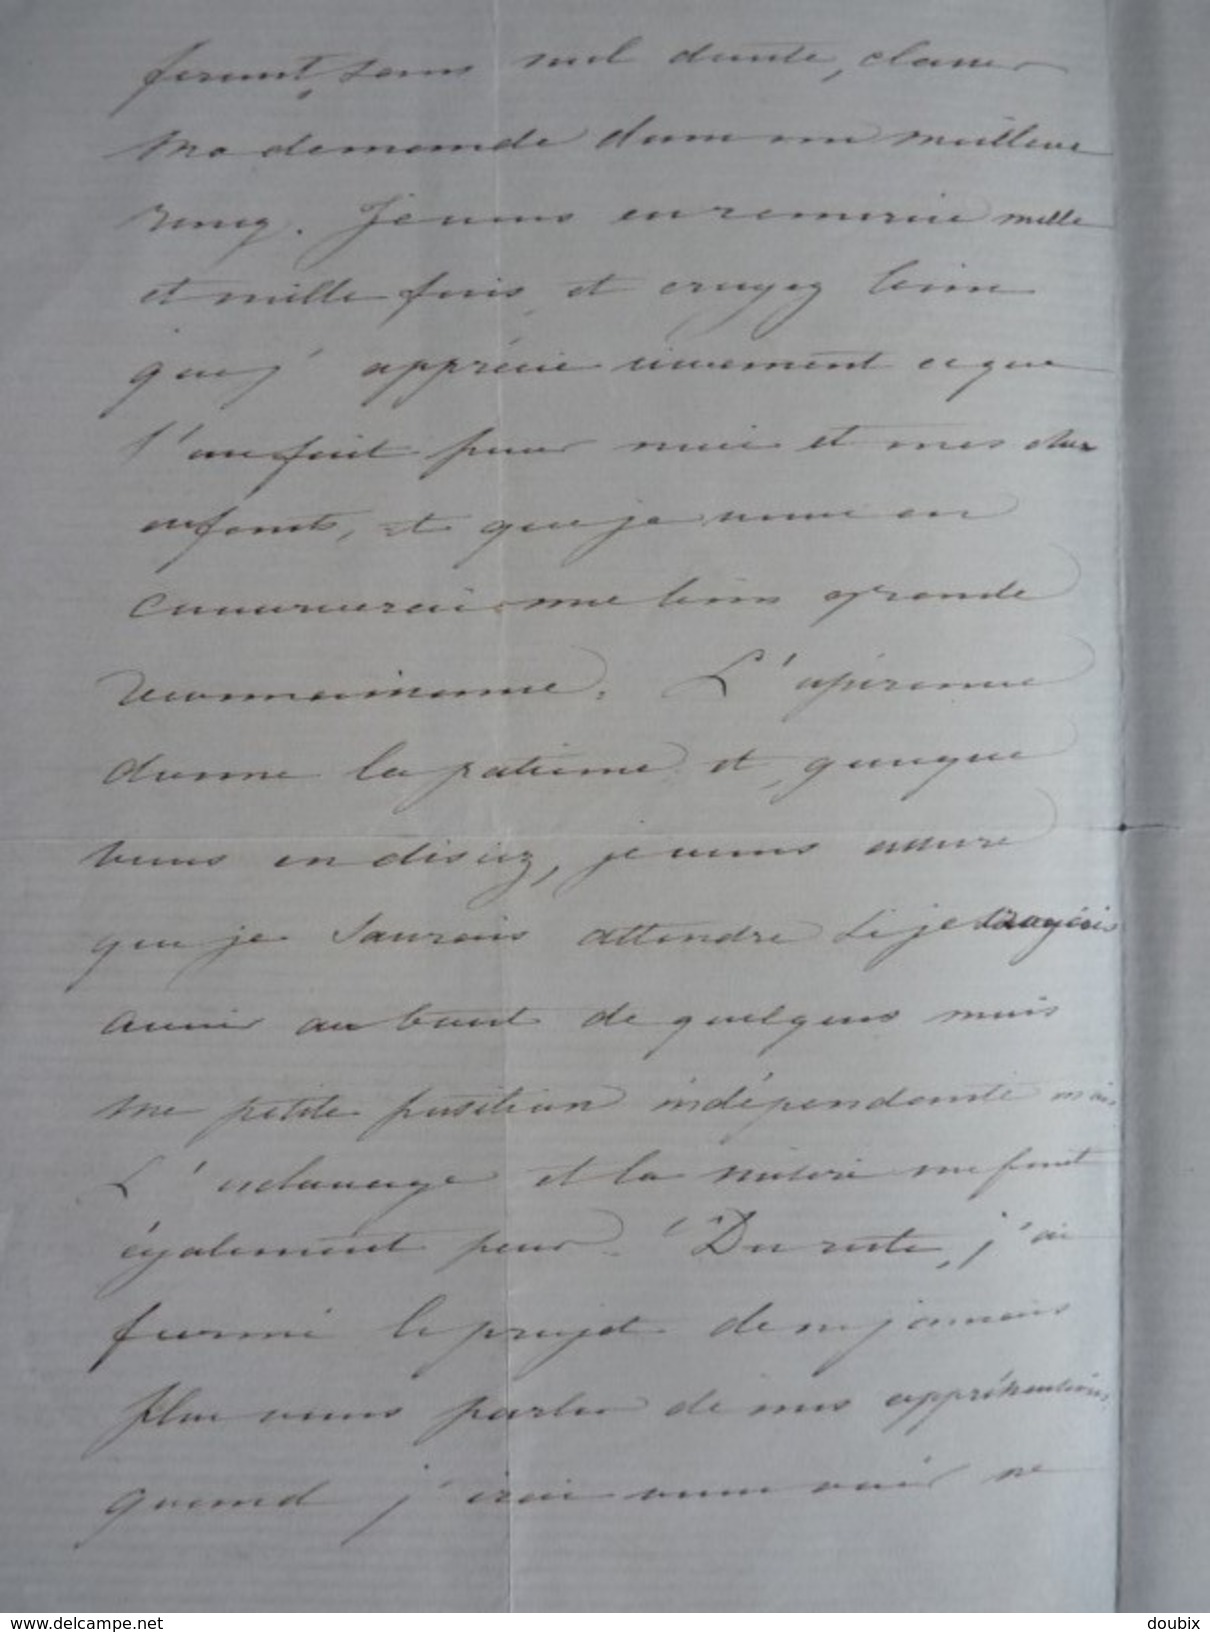 feront, sans nul doute, classer
ma demande dans un meilleur
rang. Je vous en remercie mille
et mille fois, et croyez bien
que j'apprécie vivement ce que
l'on fait pour moi et mes chers
enfants, et que je vous en
conserverai une bien grande
reconnaissance. L'espérance
donne la patience et, quoique
vous en disiez, je vous assure
que je saurais attendre si je croyais
avoir au bout de quelques mois
une petite position indépendante mais
l'esclavage et la misère me font
également peur. Du reste, j'ai
formé le projet de ne jamais
plus vous parler de mes appréhensions
quand j'irai vous voir ne
www.delcampe.net
doubix